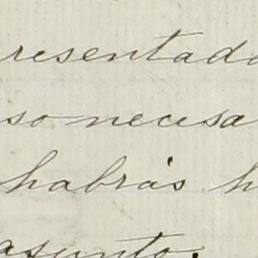 resentado
so necesa
habrás h
asunto.